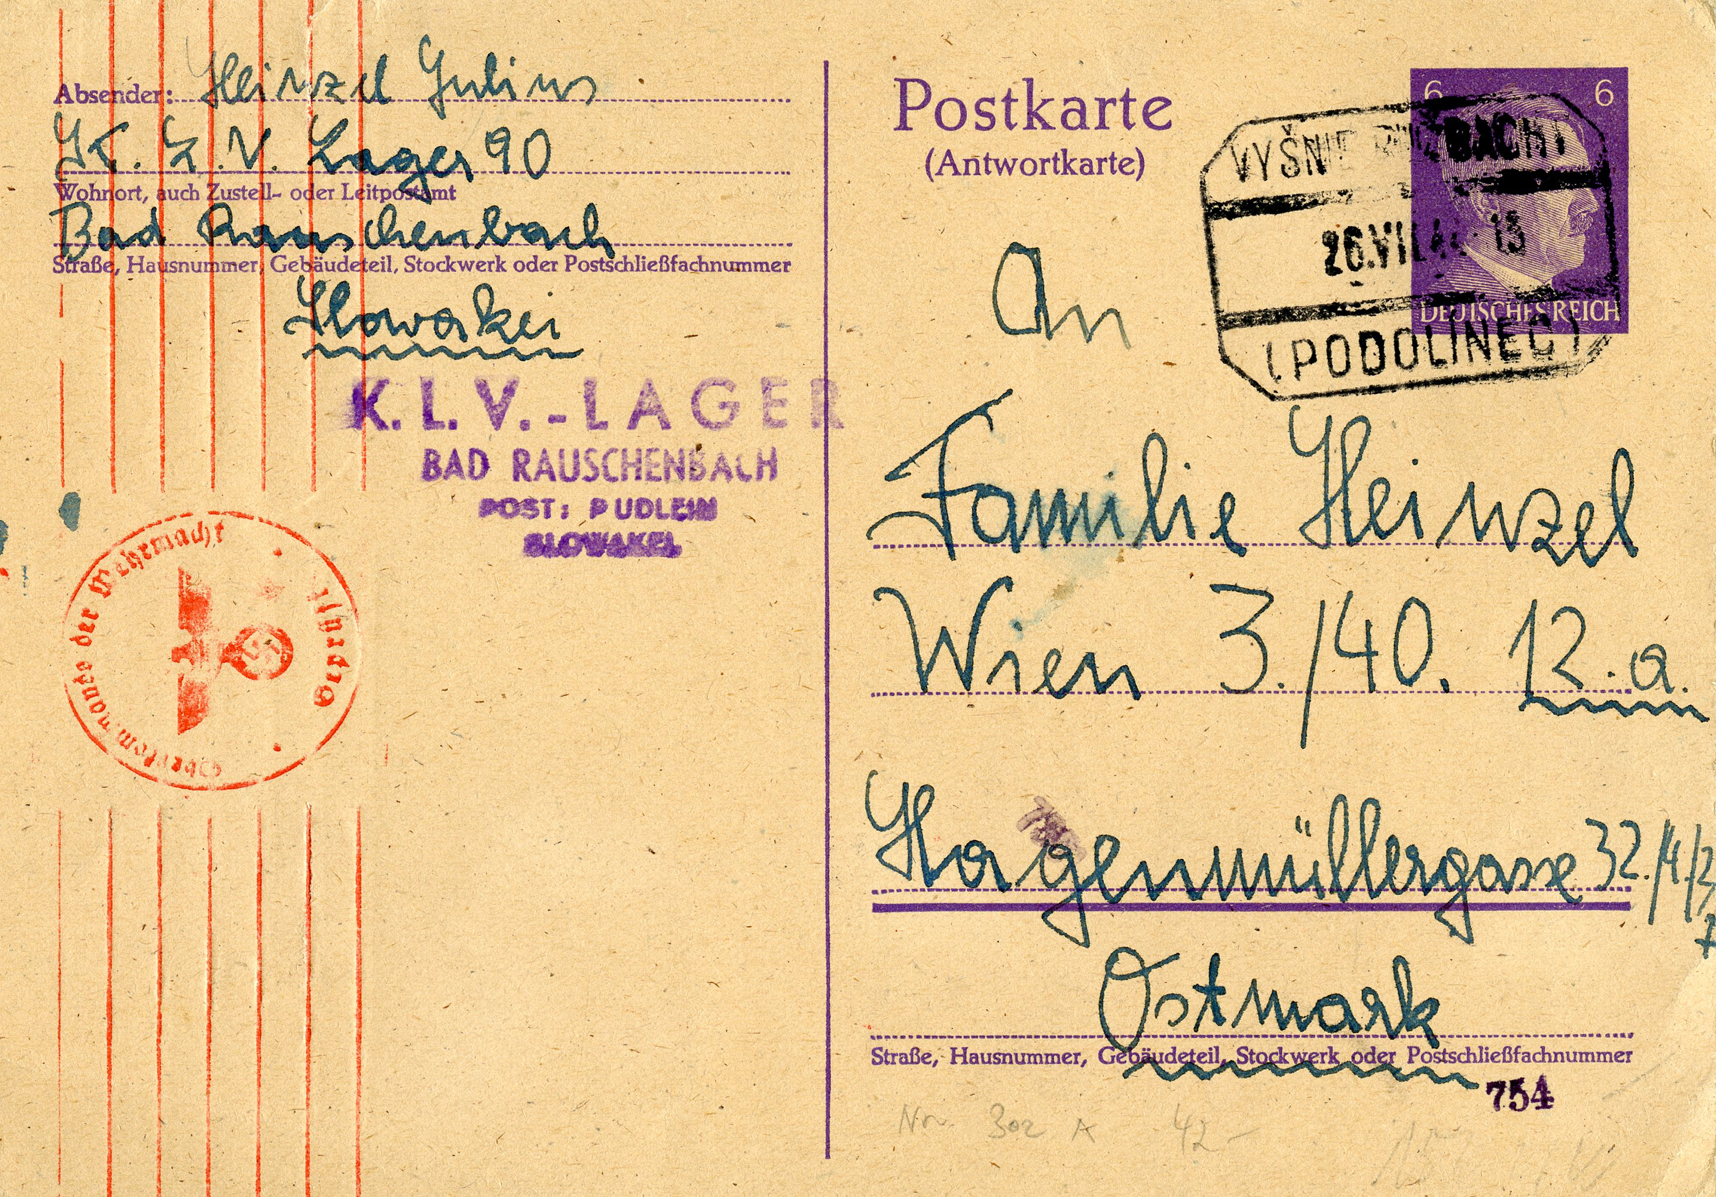 Absender: Heinzel Julius
K. L. V. Lager 90
Wohnort, auch Zustell- oder Leitpostamt
Bad Rauschenbach
Straße, Hausnummer, Gebäudeteil, Stockwerk oder Postschließfachnummer
Slowakei
K. L. V. - LAGER
BAD RAUSCHENBACH
POST: PUDLEIN
SLOWAKEI
Oberkommando der Wehrmacht
Geprüft
Postkarte
(Antwortkarte)
6 6
DEUTSCHES REICH
VYŠNIE RUŽBACHY
26.VII.44 13
(PODOLÍNEC)
An
Familie Heinzel
Wien 3./40. 12.a.
Hagenmüllergasse 32./4./2
7
Ostmark
Straße, Hausnummer, Gebäudeteil, Stockwerk oder Postschließfachnummer
754
302 A 42-